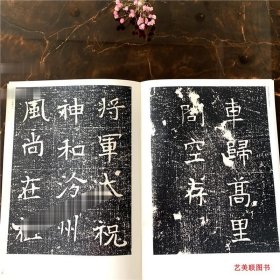 車歸蒿里
閭空存
将軍祝
神和汾州
風尚在
艺美联图书